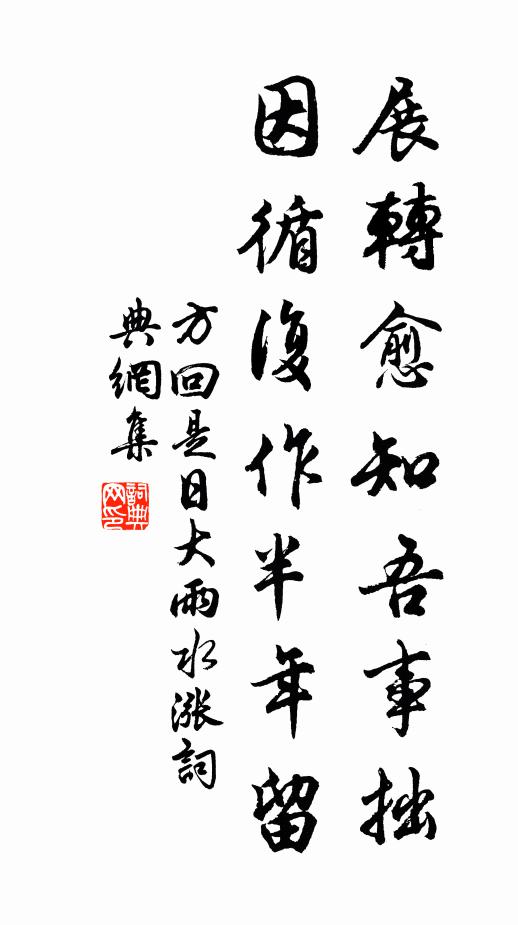 展轉愈知吾事拙
因循復作半年留
方回是日大雨水漲詞
典網集
詞典
网印